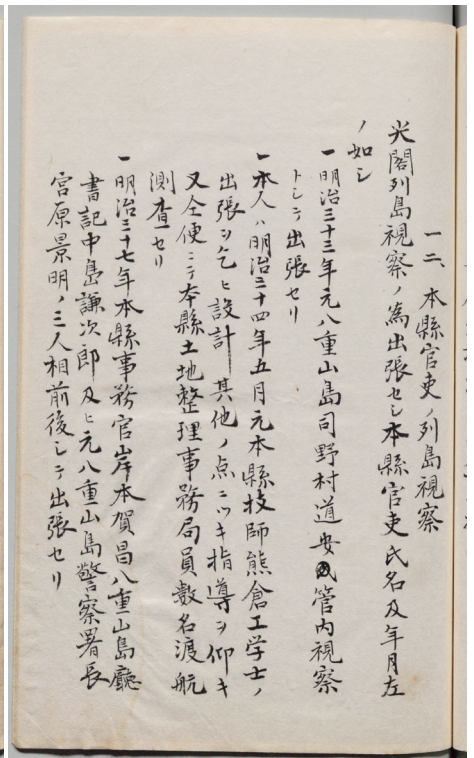 一二、本縣官吏ノ列島視察
尖閣列島視察ノ為出張セシ本縣官吏氏名及年月左
ノ如シ
一明治三十三年元八重山島司野村道安氏管内視察
トシテ出張セリ
一本人ハ明治三十四年五月元本縣技師熊倉工学士ノ
出張ヲ乞ヒ設計其他ノ点ニツキ指導ヲ仰キ
又仝便ニテ本縣土地整理事務局員数名渡航
測査セリ
一明治三十七年本縣事務官岸本賀昌八重山島廳
書記中島謙次郎及ヒ元八重山島警察署長
宮原景明ノ三人相前後シテ出張セリ